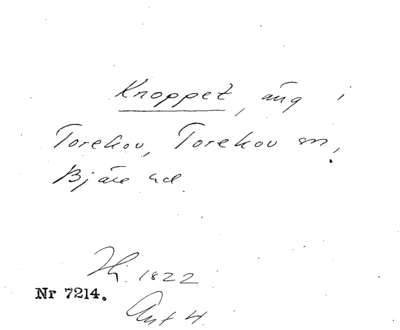 Knoppet, äng i
Torekov, Torekov sn,
Bjäre hd.
Hj. 1822
Nr 7214.
Ant H.